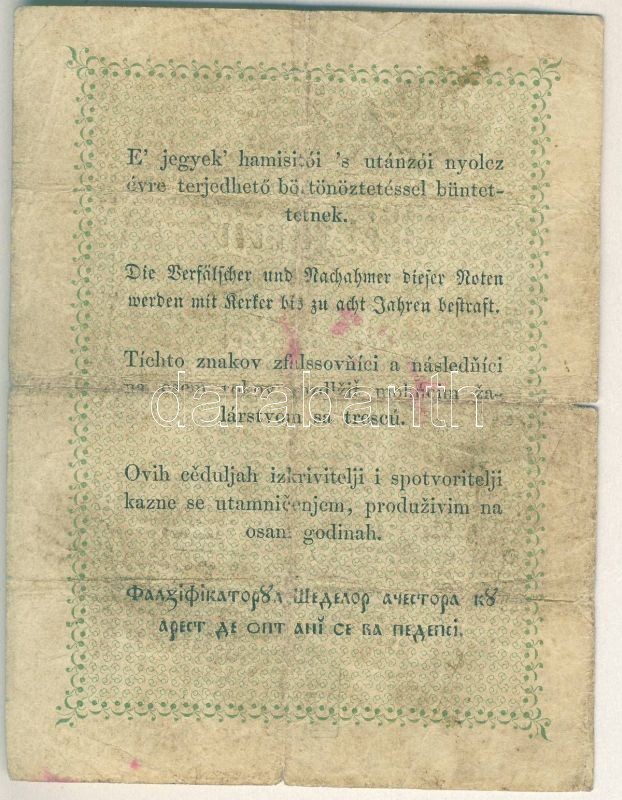 E' jegyek' hamisitói 's utánzói nyolcz
évre terjedhető börtönöztetéssel büntet-
tetnek.
Die Verfälscher und Nachahmer dieser Noten
werden mit Kerker bis zu acht Jahren bestraft.
Tíchto znakov zfalssovňíci a následňíci
na osem
lárstvom sa trescú.
Ovih cěduljah izkrivitelji i spotvoritelji
kazne se utamničenjem, produživim na
osam godinah.
Фалꙁіфікаторꙋл Шеделор ачестора кꙋ
арест де опт анĭ се ва педепсі.
darabanth